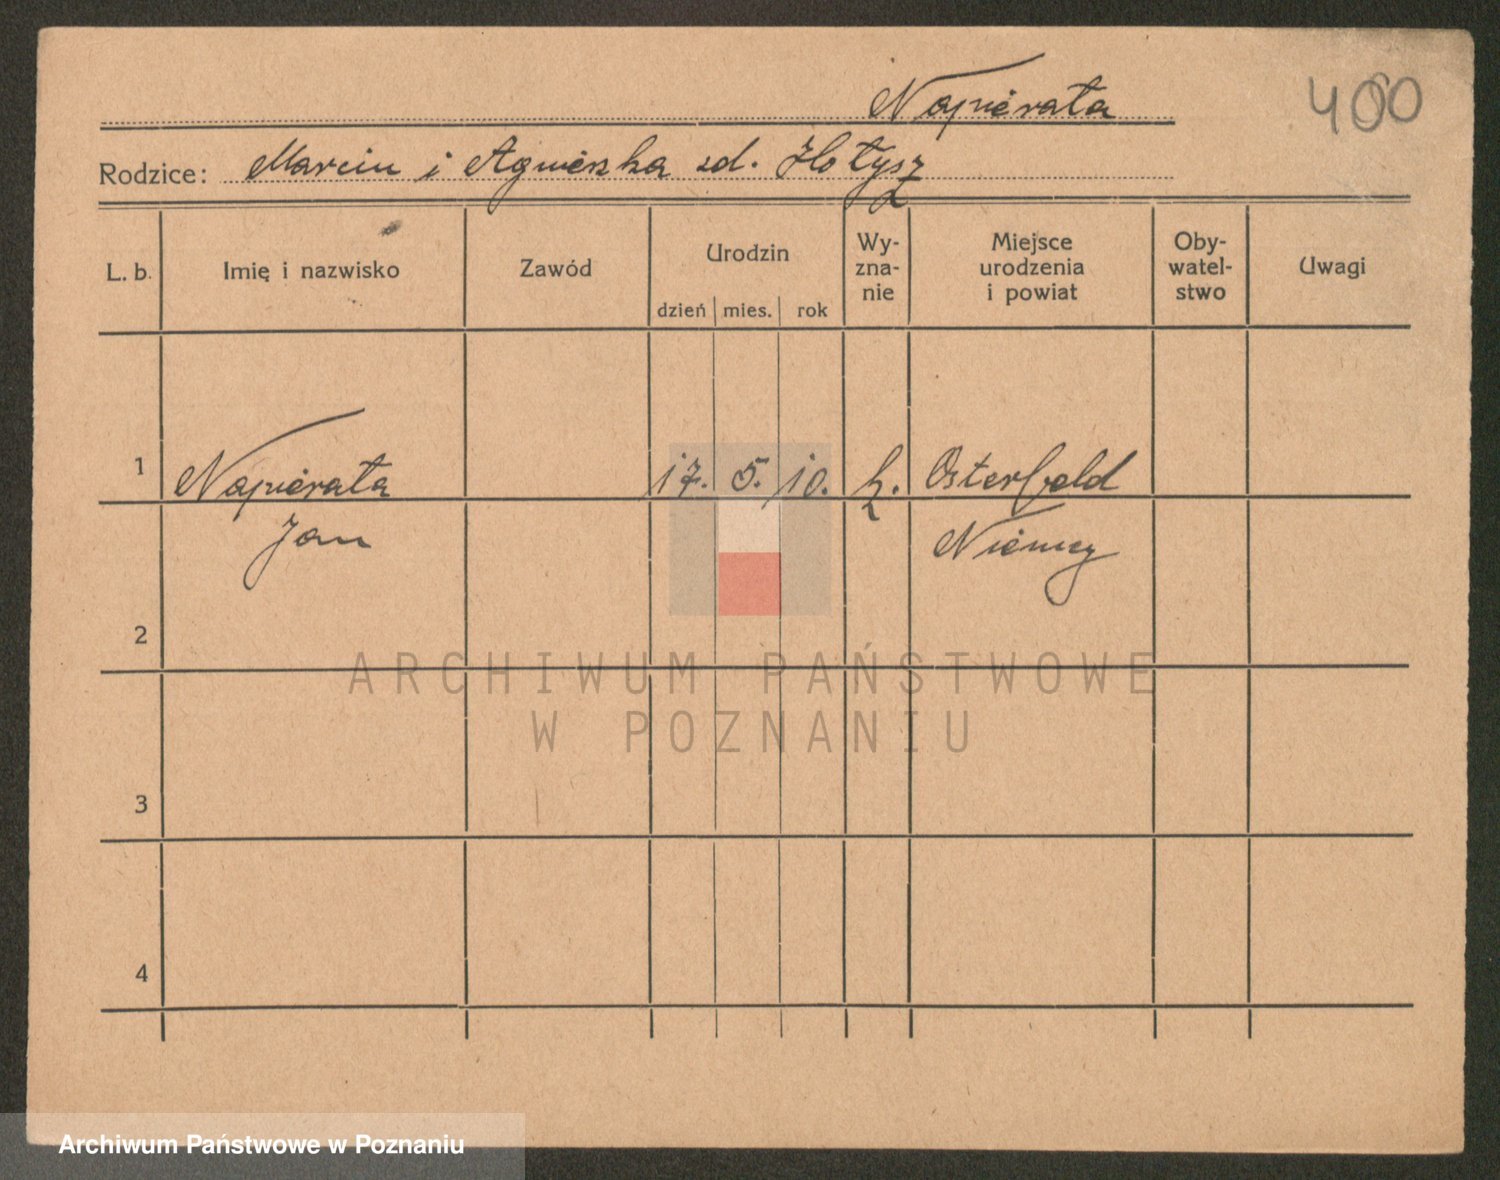 Napierała
400
Rodzice: Marcin i Agnieszka zd. Hołysz
L. b.
Imię i nazwisko
Zawód
Urodzin
dzień mies. rok
Wy-
zna-
nie
Miejsce
urodzenia
i powiat
Oby-
watel-
stwo
Uwagi
1 Napierała 17. 5. 10. k. Osterfeld
Jan Niemcy
2
ARCHIWUM PAŃSTWOWE
W POZNANIU
3
4
Archiwum Państwowe w Poznaniu